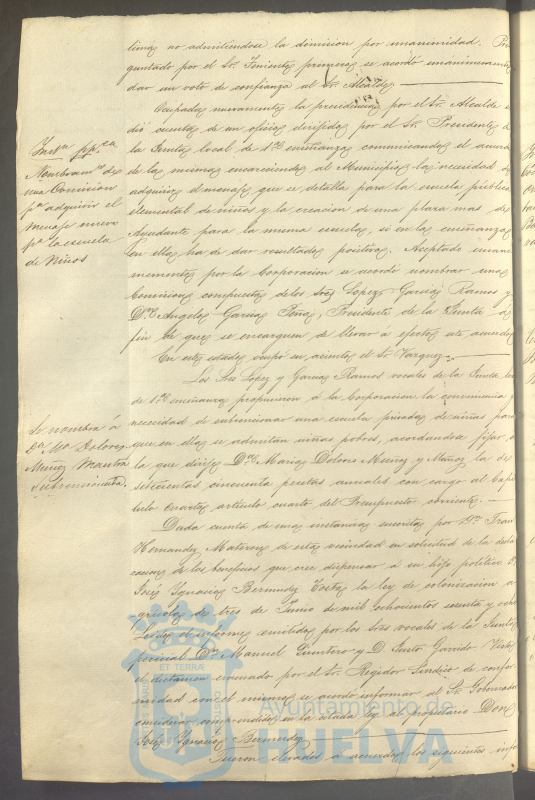 timas no admitiendose la dimision por unanimidad. Pre
guntado por el Sr. Teniente primero se acordó unanimemente
dar un voto de confianza al Sr. Alcalde.
Ocupada nuevamente la presidencia por el Sr. Alcalde se
dió cuenta de un oficio dirigido por el Sr. Presidente de
la Junta local de 1ª enseñanza comunicando el acuerdo
de la misma encareciendo al Municipio la necesidad de
adquirir el menaje que se detalla para la escuela publica
elemental de niños y la creacion de una plaza mas de
Ayudante para la misma escuela, si en la enseñanza
en ella ha de dar resultados positivos. Aceptado unani
memente por la Corporacion se acordó nombrar una
Comision compuesta de los Sres Lopez Garcia Ramos y
Dn Angel Garcias Peña, Presidente de la Junta á
fin de que se encarguen de llevar á efecto este acuerdo
En este estado ocupó su asiento el Sr. Vazquez.
Los Sres Lopez y Garcia Ramos vocales de la Junta local
de 1ª enseñanza propusieron á la Corporacion la conveniencia y
necesidad de subvencionar una escuela privada de niñas para
que en ella se admitan niñas pobres, acordandose fijar á
la que dirije Dª Maria Dolores Muñoz y Muñoz la de
setecientas cincuenta pesetas anuales con cargo al Capi
tulo cuarto articulo cuarto del Presupuesto corriente.
Dada cuenta de una instancia suscrita por Dn Fran
Hernandez Mateos de esta vecindad en solicitud de la decla
racion de los beneficios que cree dispensar a su hijo politico D.
José Ignacio Bermudez la ley de colonizacion a
gricola de tres de Junio de mil ochocientos sesenta y ocho
Leidos el informe emitido por los Sres vocales de la Junta
pericial Dn Manuel y D. Justo Garrido
el dictamen evacuado por el Sr. Regidor Sindico de confor
midad con el mismo se acordó informar al Sr. Gobernador
considerar comprendido en la citada ley al propietario Don
José Ignacio Bermudez
Fueron elevados á acuerdos los siguientes info
Instn ppca
Nombramto de
una Comision
pª adquirir el
menaje nuevo
pª la escuela
de Niños
Se nombra á
Dª Mª Dolores
Muñoz Maestra
subvencionada.
Ayuntamiento de
HUELVA